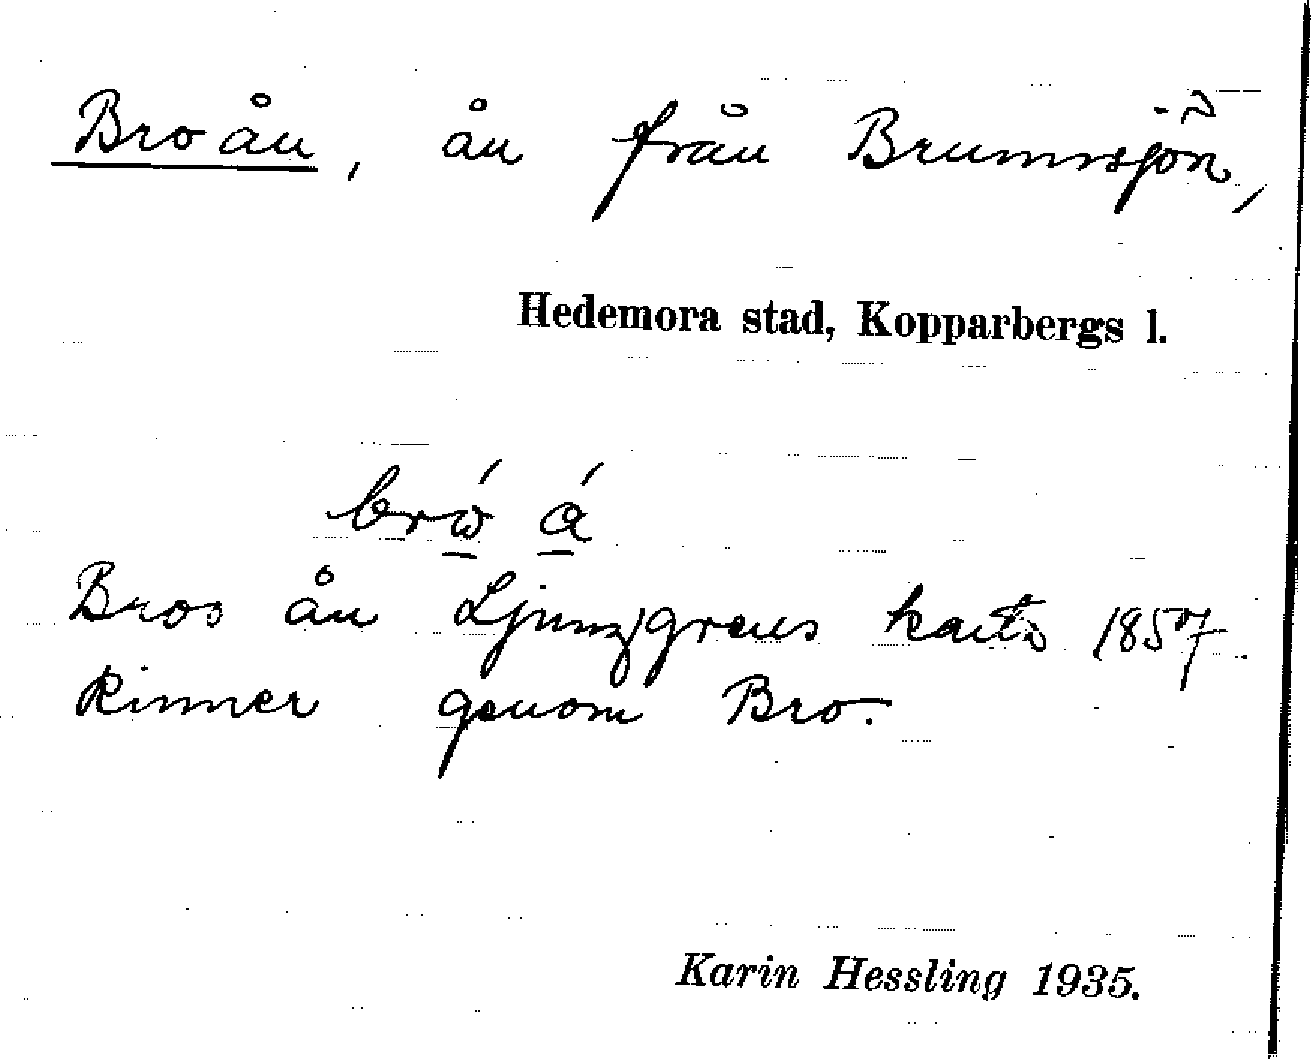 Broån, ån från Brumsjön,
Hedemora stad, Kopparbergs l.
brώ á
Bros ån Ljunggrens karta 1857
Rinner genom Bro.
Karin Hessling 1935.